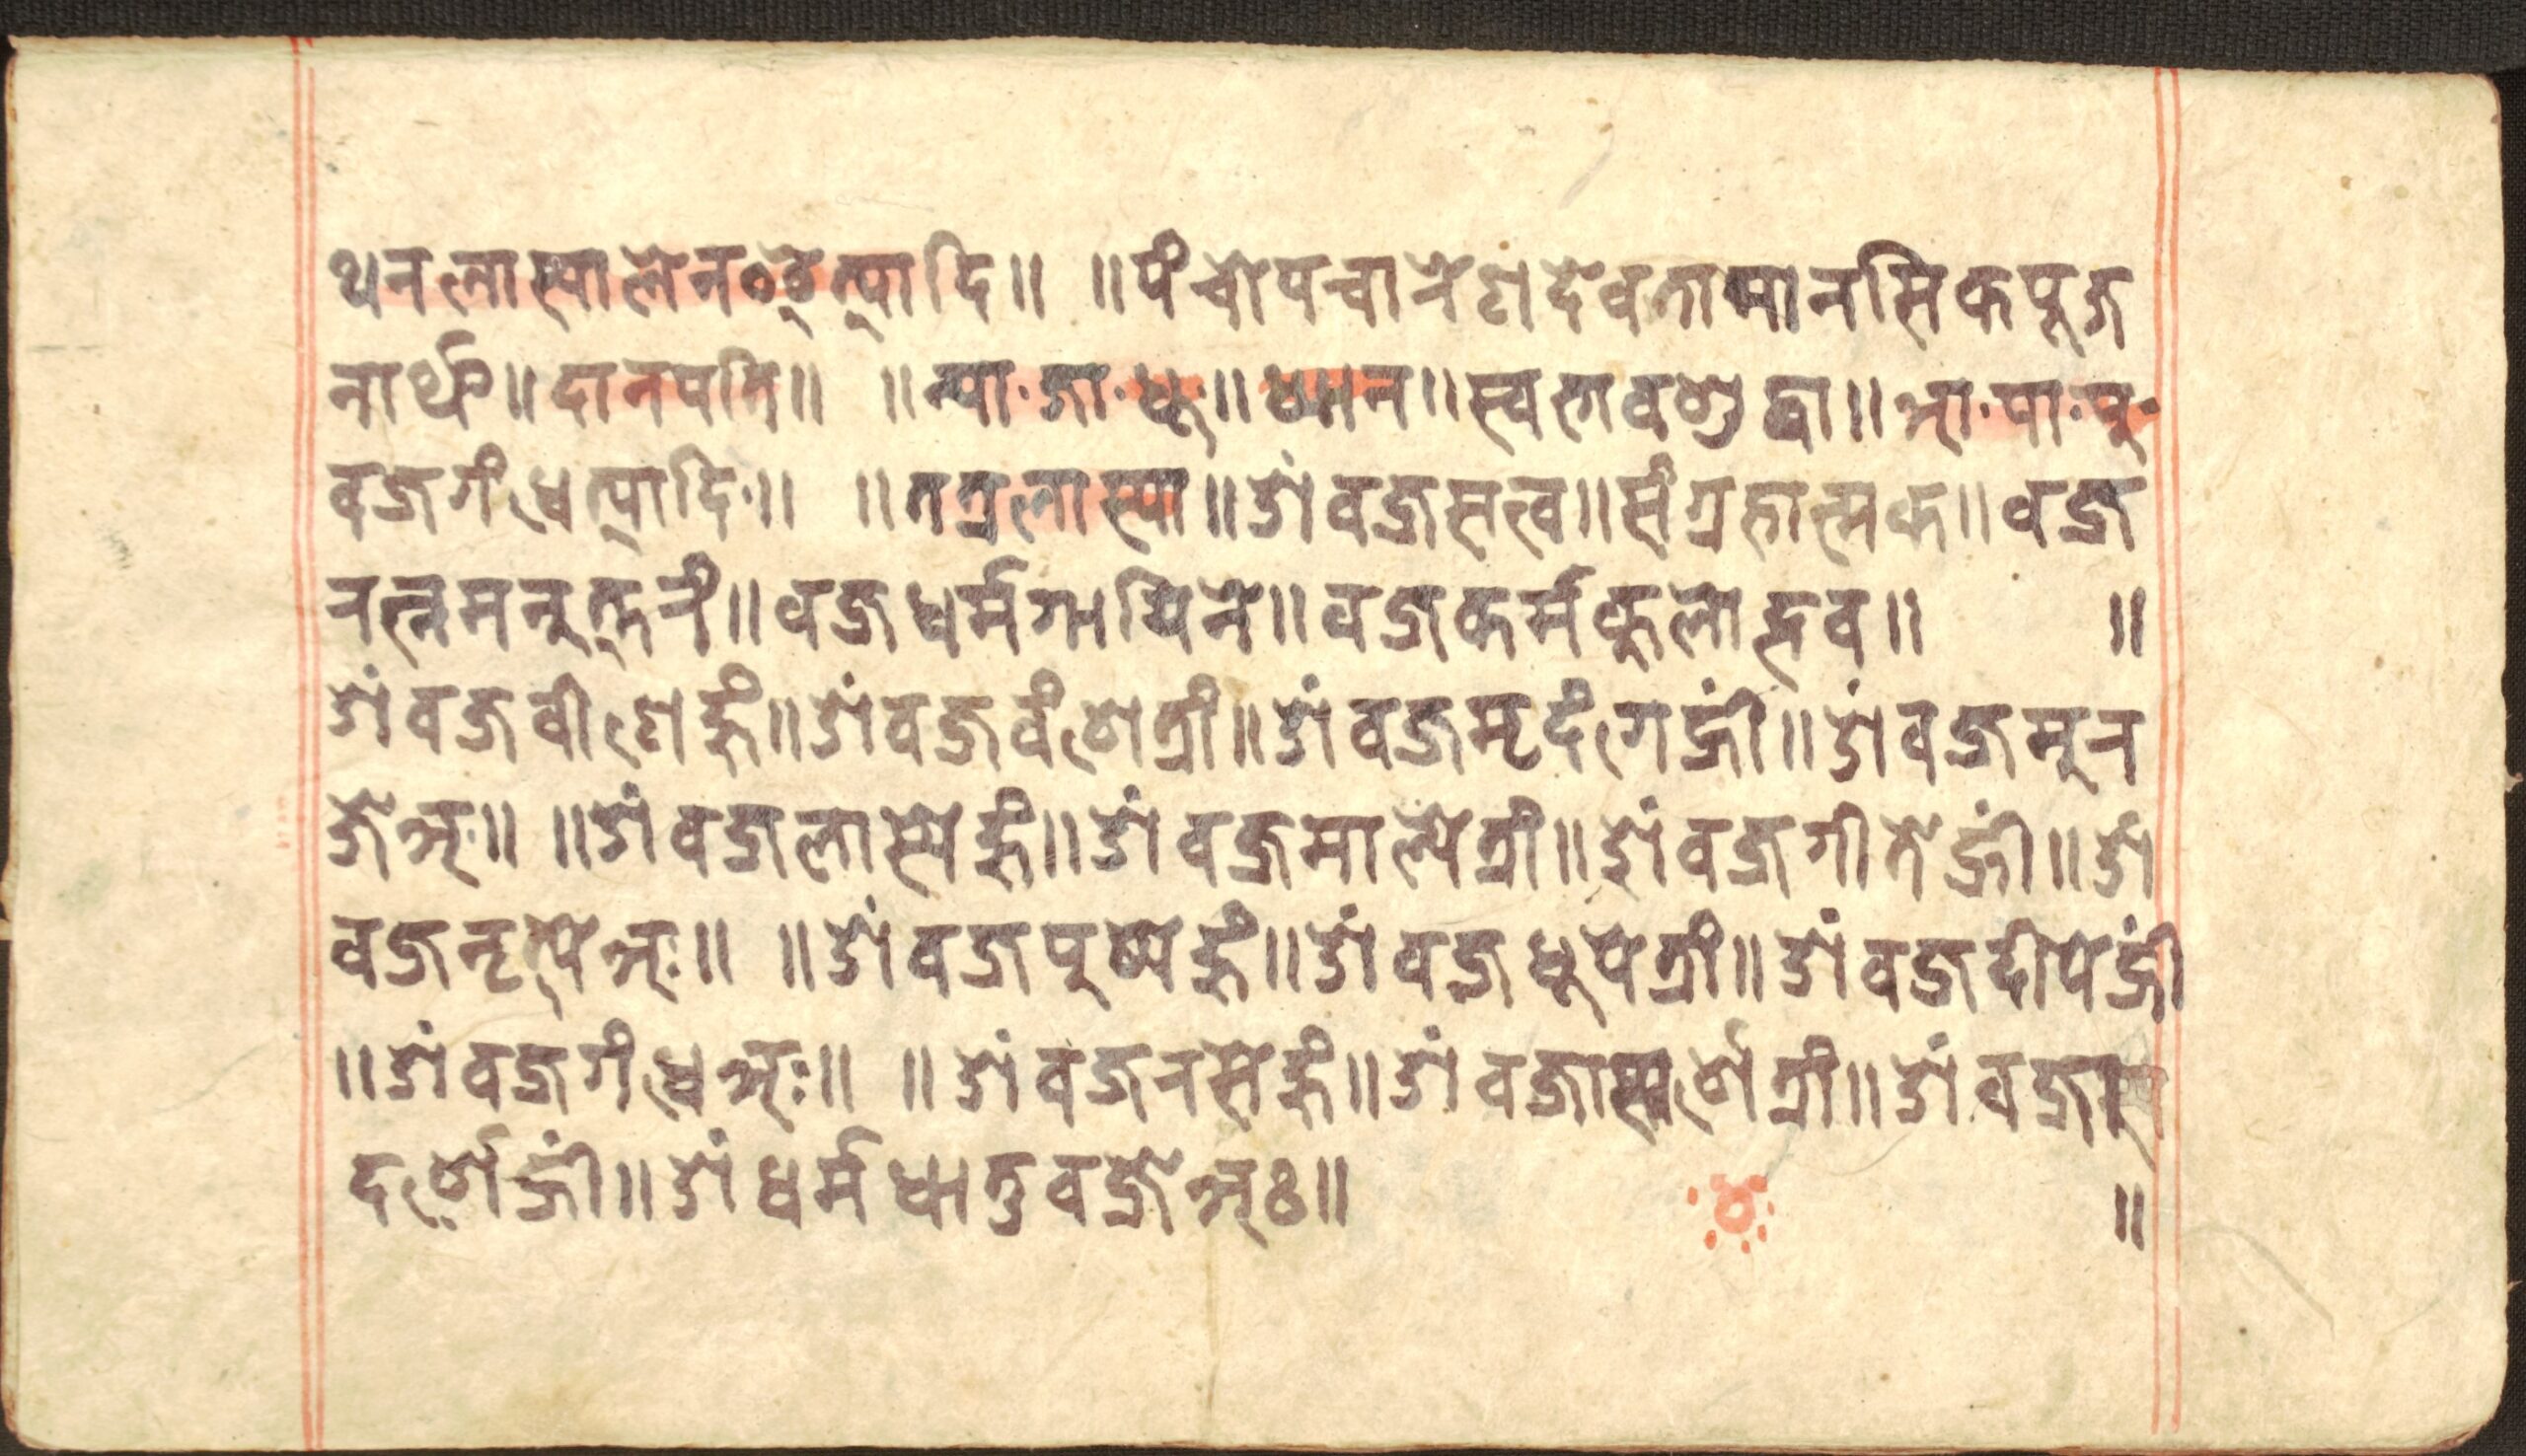 थनलास्यालेनछ्वेत्यादि॥ ॥पंचोपचारेणदेवतामानसिकपूज
नार्थं॥दानपति॥ ॥न्या॰जा॰धू॰॥ध्यान॥स्वभावशुद्धा॥आ॰पा॰पु॰
वज्रगंधेत्यादि॰॥ ॥तत्रलास्या॥ॐवज्रसत्व॥संग्रहात्मक॥वज्र
रत्नमनुत्तरं॥वज्रधर्मगायिने॥वज्रकर्मकुलोद्भव॥ ॥
ॐवज्रवीणेहूँ॥ॐवज्रवंशेत्रीं॥ॐवज्रमृदंगेह्रीं॥ॐवज्रमुर
जेअः॥ ॥ॐवज्रलास्येहूँ॥ॐवज्रमाल्येत्रीं॥ॐवज्रगीतेह्रीं॥ॐ
वज्रनृत्येअः॥ ॥ॐवज्रपुष्पेहूँ॥ॐवज्रधूपेत्रीं॥ॐवज्रदीपेह्रीं
॥ॐवज्रगंधेअः॥ ॥ॐवज्ररसेहूँ॥ॐ त्रीं॥ॐ
ह्रीं॥ॐधर्मधातुवज्रेअः॥ ॥